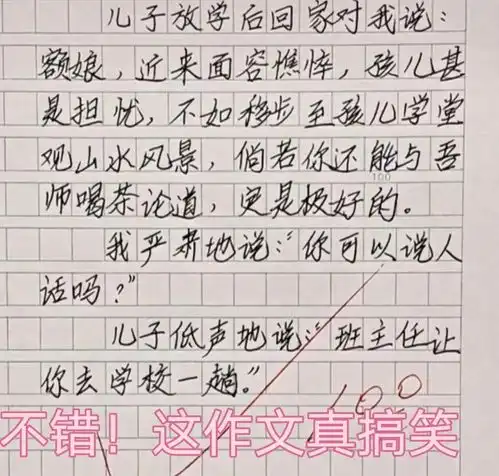 儿子放学后回家对我说：
额娘，近来面容憔悴，孩儿甚
是担忧，不如移步至孩儿学堂
观山水风景，倘若你还能与吾
师喝茶论道，定是极好的。
100
我严肃地说：“你可以说人
话吗？”
儿子低声地说：“班主任让
你去学校一趟。”
100
不错！这作文真搞笑